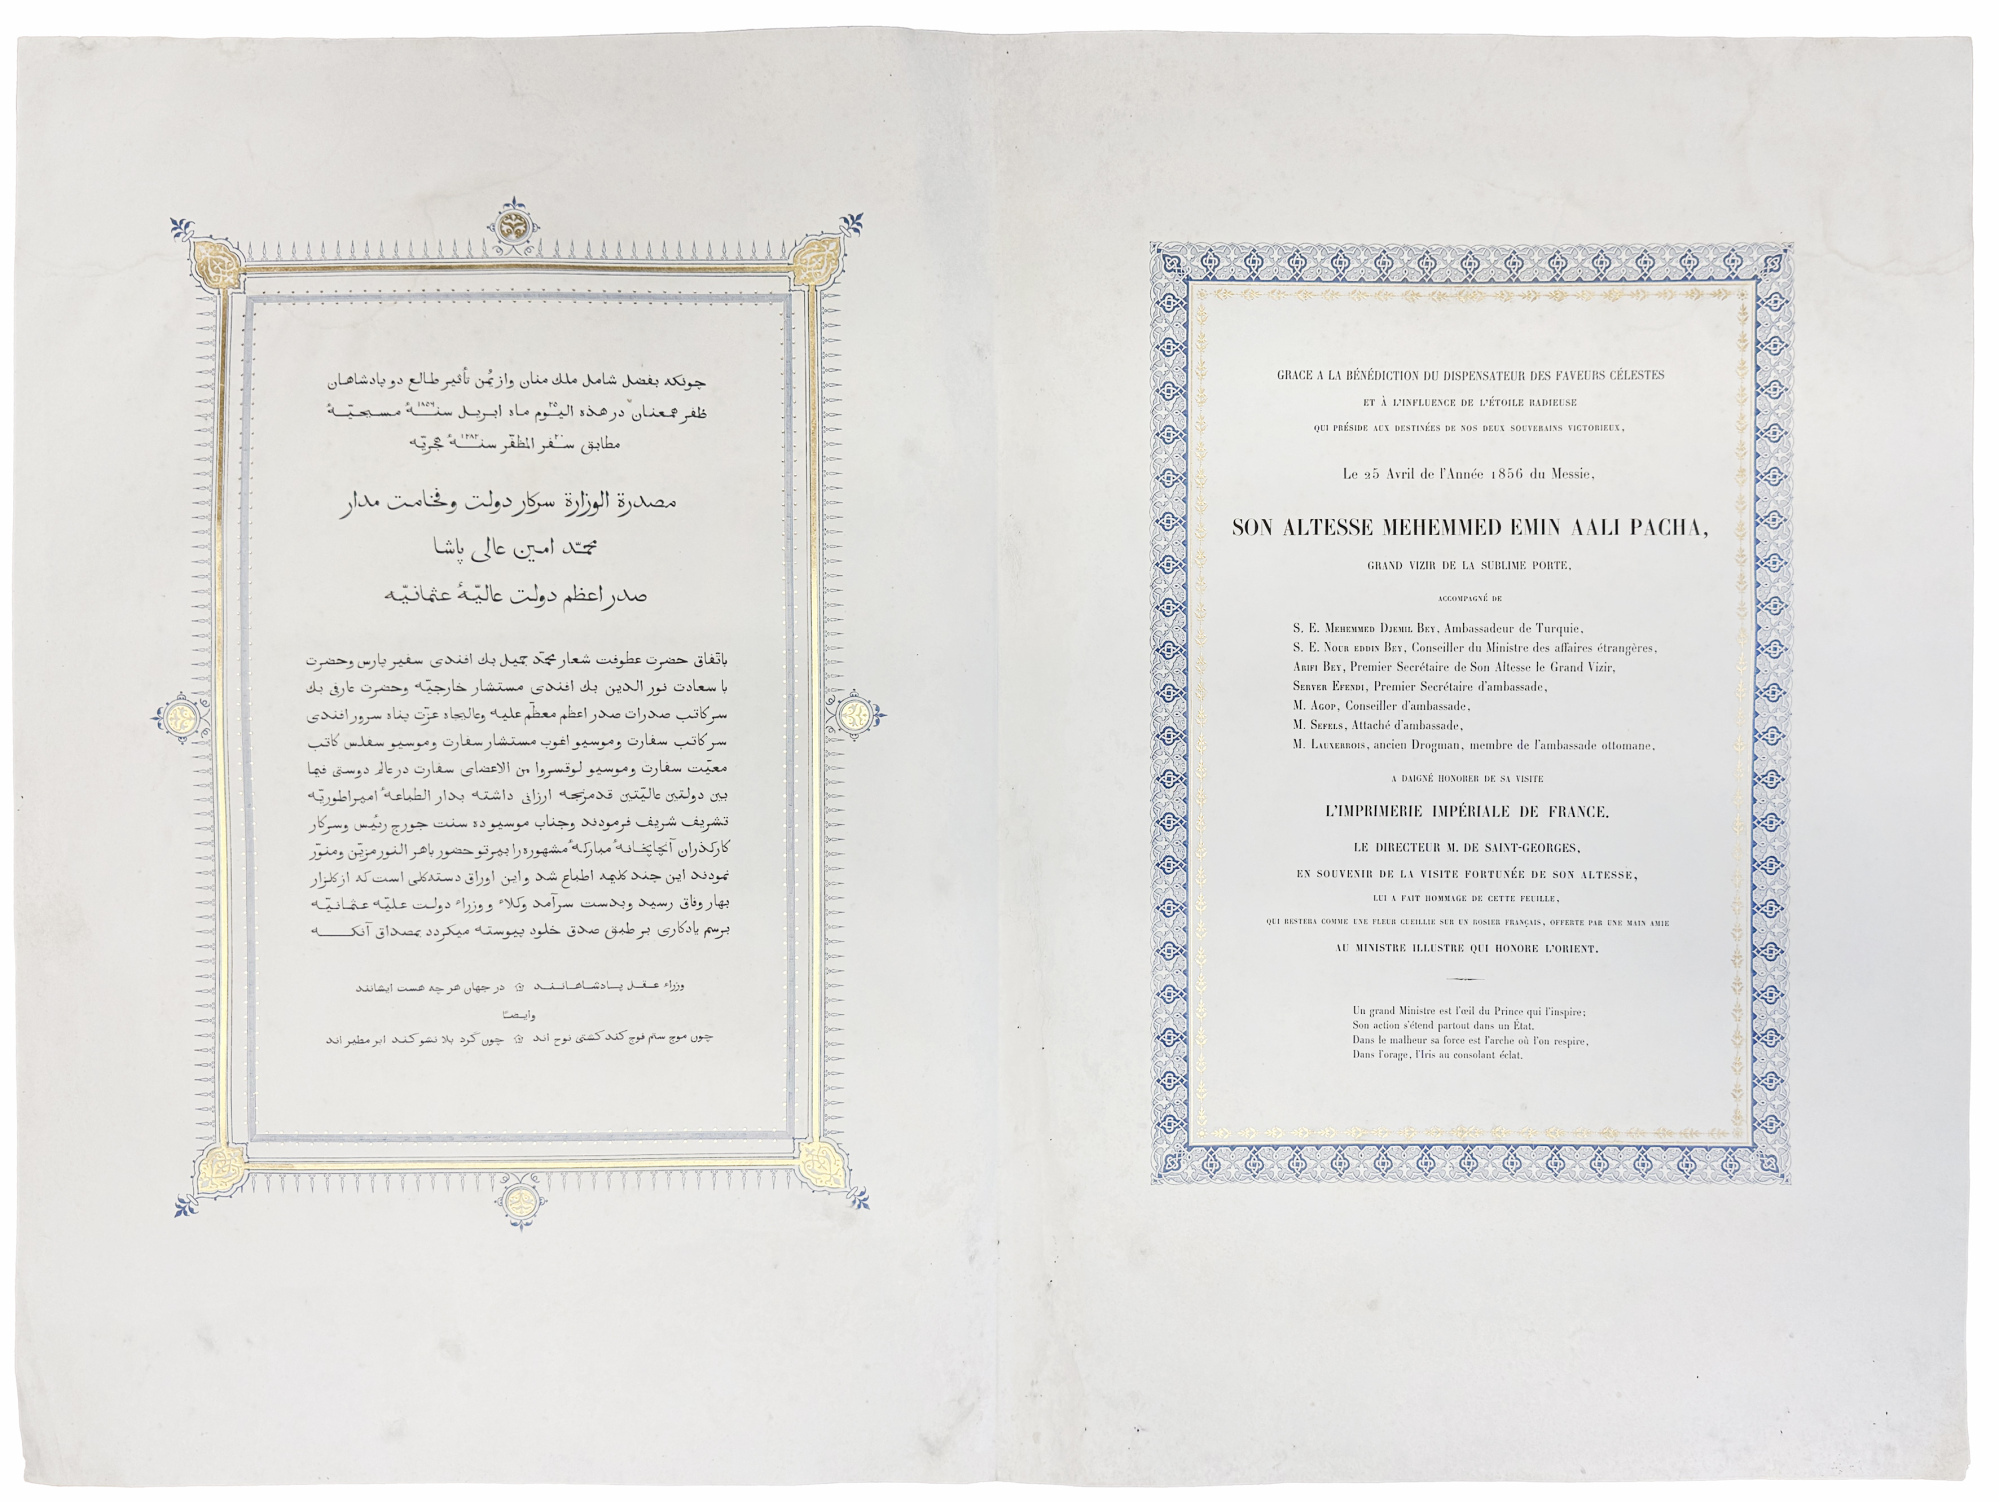 چونکه بفضل شامل ملك منان وازیُمن تأثیر طالع دو پادشاهان
ظفر همعنان در هذه الیوم ٢٥ ماه ابریل سنهٔ ١٨٥٦ مسیحیّهٔ
مطابق سفر المظفّر سنهٔ هجریّه
مصدرة الوزارة سرکار دولت وفخامت مدار
محمّد امین عالی پاشا
صدر اعظم دولت عالیّهٔ عثمانیّه
باتّفاق حضرت عطوفت شعار محمّد جمیل بك افندی سفیر پارس وحضرت
با سعادت نور الدین بك افندی مستشار خارجیّه وحضرت عارفی بك
سرکاتب صدرات صدر اعظم معظّم علیه وعالیجاه عزّت پناه سرور افندی
سرکاتب سفارت وموسیو اغوب مستشار سفارت وموسیو سفلس کاتب
معیّت سفارت وموسیو لوقسروا من الاعضای سفارت در عالم دوستی فیما
بین دولتین عالیّتین قدمرنجه ارزانی داشته بدار الطباعهٔ امپراطوریّه
تشریف شریف فرمودند وجناب موسیو ده سنت جورج رئیس وسرکار
کارکذران آنچاپخانهٔ مبارکهٔ مشهوره را بپرتو حضور باهر النور مزیّن ومنوّر
نمودند این چند کلیمه اطباع شد واین اوراق دسته‌کلی است که از کلزار
بهار وفاق رسید وبدست سرآمد وکلاء و وزراء دولت علیّه عثمانیّه
برسم یادکاری بر طبق صدق خلود پیوسته میکردد بمصداق آنکه
وزراء عقل پادشاهانند ۞ در جهان هر چه هست ایشانند
وایضًا
چون موج ستم فوج کند کشتی نوح اند ۞ چون گرد بلا نشو کند ابر مطیر اند
GRACE A LA BÉNÉDICTION DU DISPENSATEUR DES FAVEURS CÉLESTES
ET À L'INFLUENCE DE L'ÉTOILE RADIEUSE
QUI PRÉSIDE AUX DESTINÉES DE NOS DEUX SOUVERAINS VICTORIEUX,
Le 25 Avril de l'Année 1856 du Messie,
SON ALTESSE MEHEMMED EMIN AALI PACHA,
GRAND VIZIR DE LA SUBLIME PORTE,
ACCOMPAGNÉ DE
S. E. MEHEMMED DJEMIL BEY, Ambassadeur de Turquie,
S. E. NOUR EDDIN BEY, Conseiller du Ministre des affaires étrangères,
ARIFI BEY, Premier Secrétaire de Son Altesse le Grand Vizir,
SERVER EFENDI, Premier Secrétaire d'ambassade,
M. AGOP, Conseiller d'ambassade,
M. SEFELS, Attaché d'ambassade,
M. LAUXERROIS, ancien Drogman, membre de l'ambassade ottomane,
A DAIGNÉ HONORER DE SA VISITE
L'IMPRIMERIE IMPÉRIALE DE FRANCE.
LE DIRECTEUR M. DE SAINT-GEORGES,
EN SOUVENIR DE LA VISITE FORTUNÉE DE SON ALTESSE,
LUI A FAIT HOMMAGE DE CETTE FEUILLE,
QUI RESTERA COMME UNE FLEUR CUEILLIE SUR UN ROSIER FRANÇAIS, OFFERTE PAR UNE MAIN AMIE
AU MINISTRE ILLUSTRE QUI HONORE L'ORIENT.
Un grand Ministre est l'œil du Prince qui l'inspire;
Son action s'étend partout dans un État.
Dans le malheur sa force est l'arche où l'on respire,
Dans l'orage, l'Iris au consolant éclat.